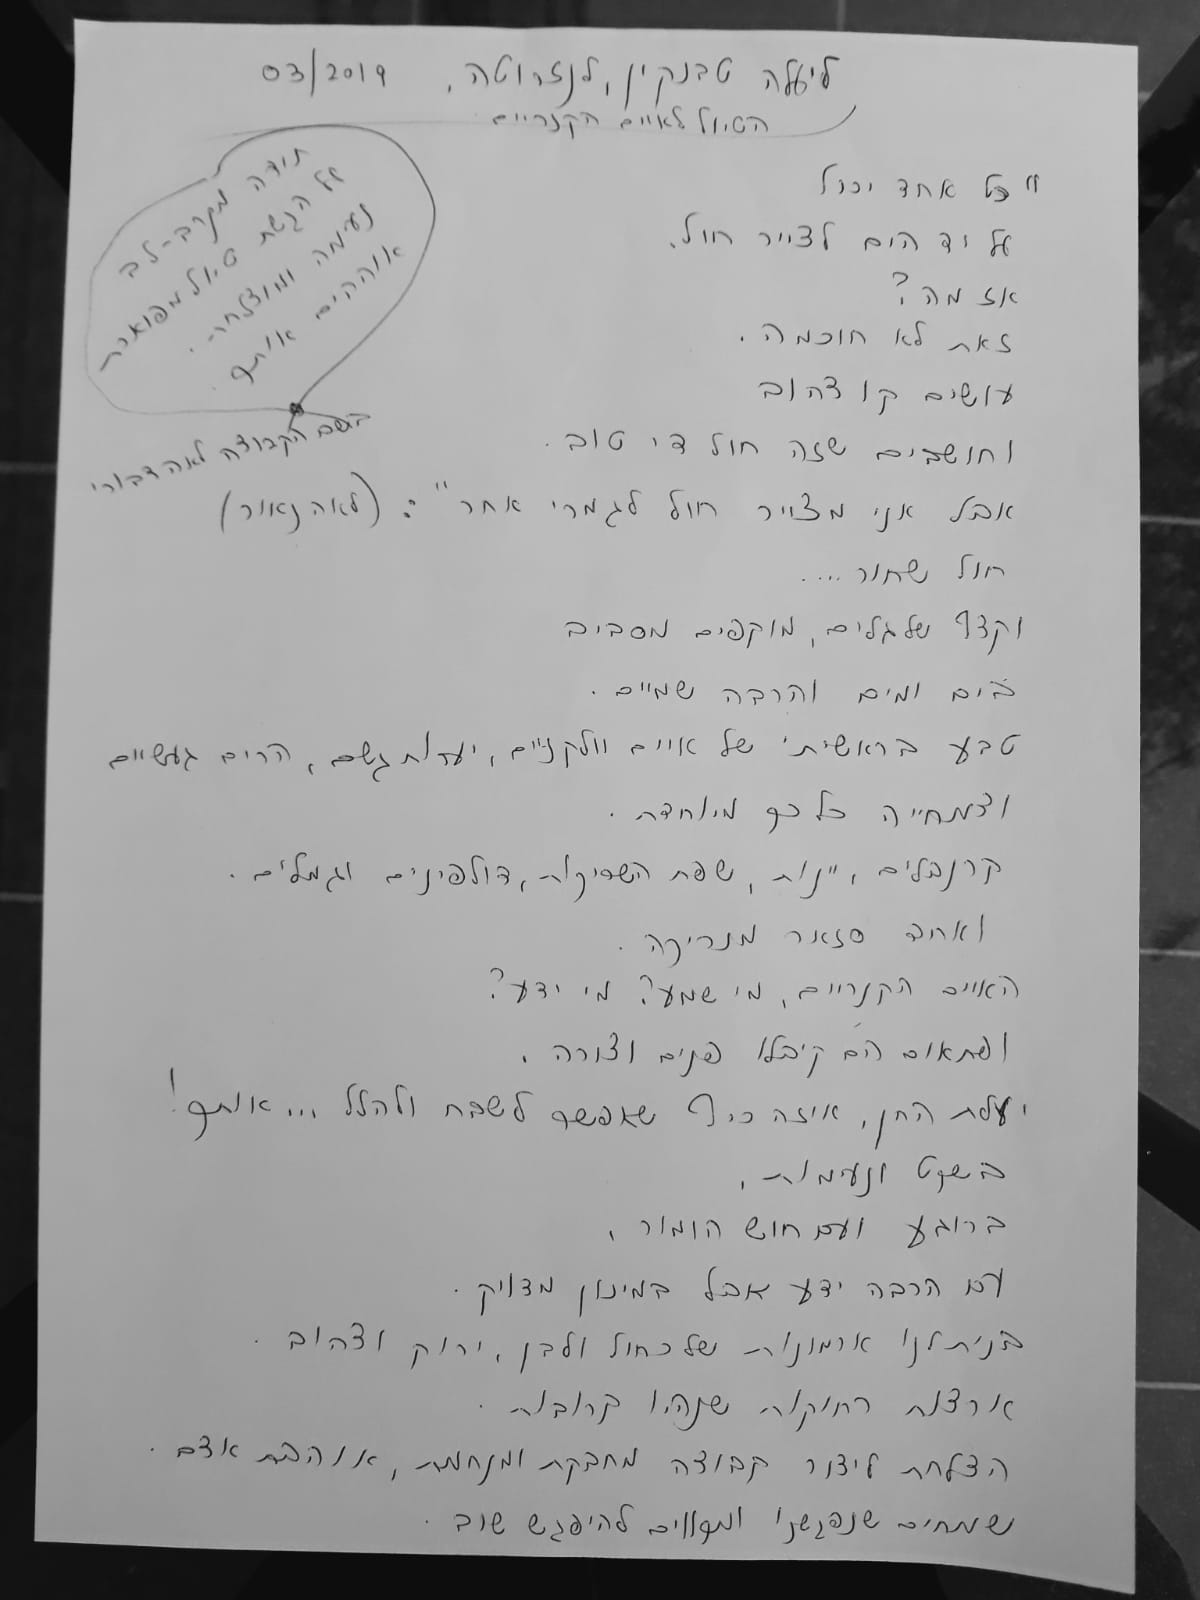 ליעלה טבנקין, לנזרוטה, 03/2019
הטיול לאיים הקנריים
"כל אחד יכול
על יד הים לצייר חול.
אז מה?
זאת לא חוכמה.
עושים קו צהוב
וחושבים שזה חול די טוב.
אבל אני מצייר חול לגמרי אחר": (לאה נאור)
חול שחור....
וקצף של גלים, מוקפים מסביב
בים ומים והרבה שמיים.
טבע בראשיתי של איים וולקניים, יערות גשם, הרים געשיים
וצמחייה כל כך מיוחדת.
קרנבלים, יינות, שפת השריקות, דולפינים וגמלים.
ואחד סזאר מנריקה.
האיים הקנריים, מי שמע? מי ידע?
ופתאום הם קיבלו פנים וצורה,
יעלת החן, איזה כיף שאפשר לשבח ולהלל ... אותך!
בשקט ונעימות,
ברוגע ועם חוש הומור,
עם הרבה ידע אבל במינון מדויק.
בנית לנו ארמונות של כחול ולבן, ירוק וצהוב.
ארצות רחוקות שנהיו קרובות.
הצלחת ליצור קבוצה מחבקת ומנחמת, אוהבת אדם.
שמחים שנפגשנו ומקווים להיפגש שוב.
תודה מקרב-לב
על הגשת טיול מפוארת
נעימה ומוצלחת.
אוהבים אותך
בשם הקבוצה לאה דבורי